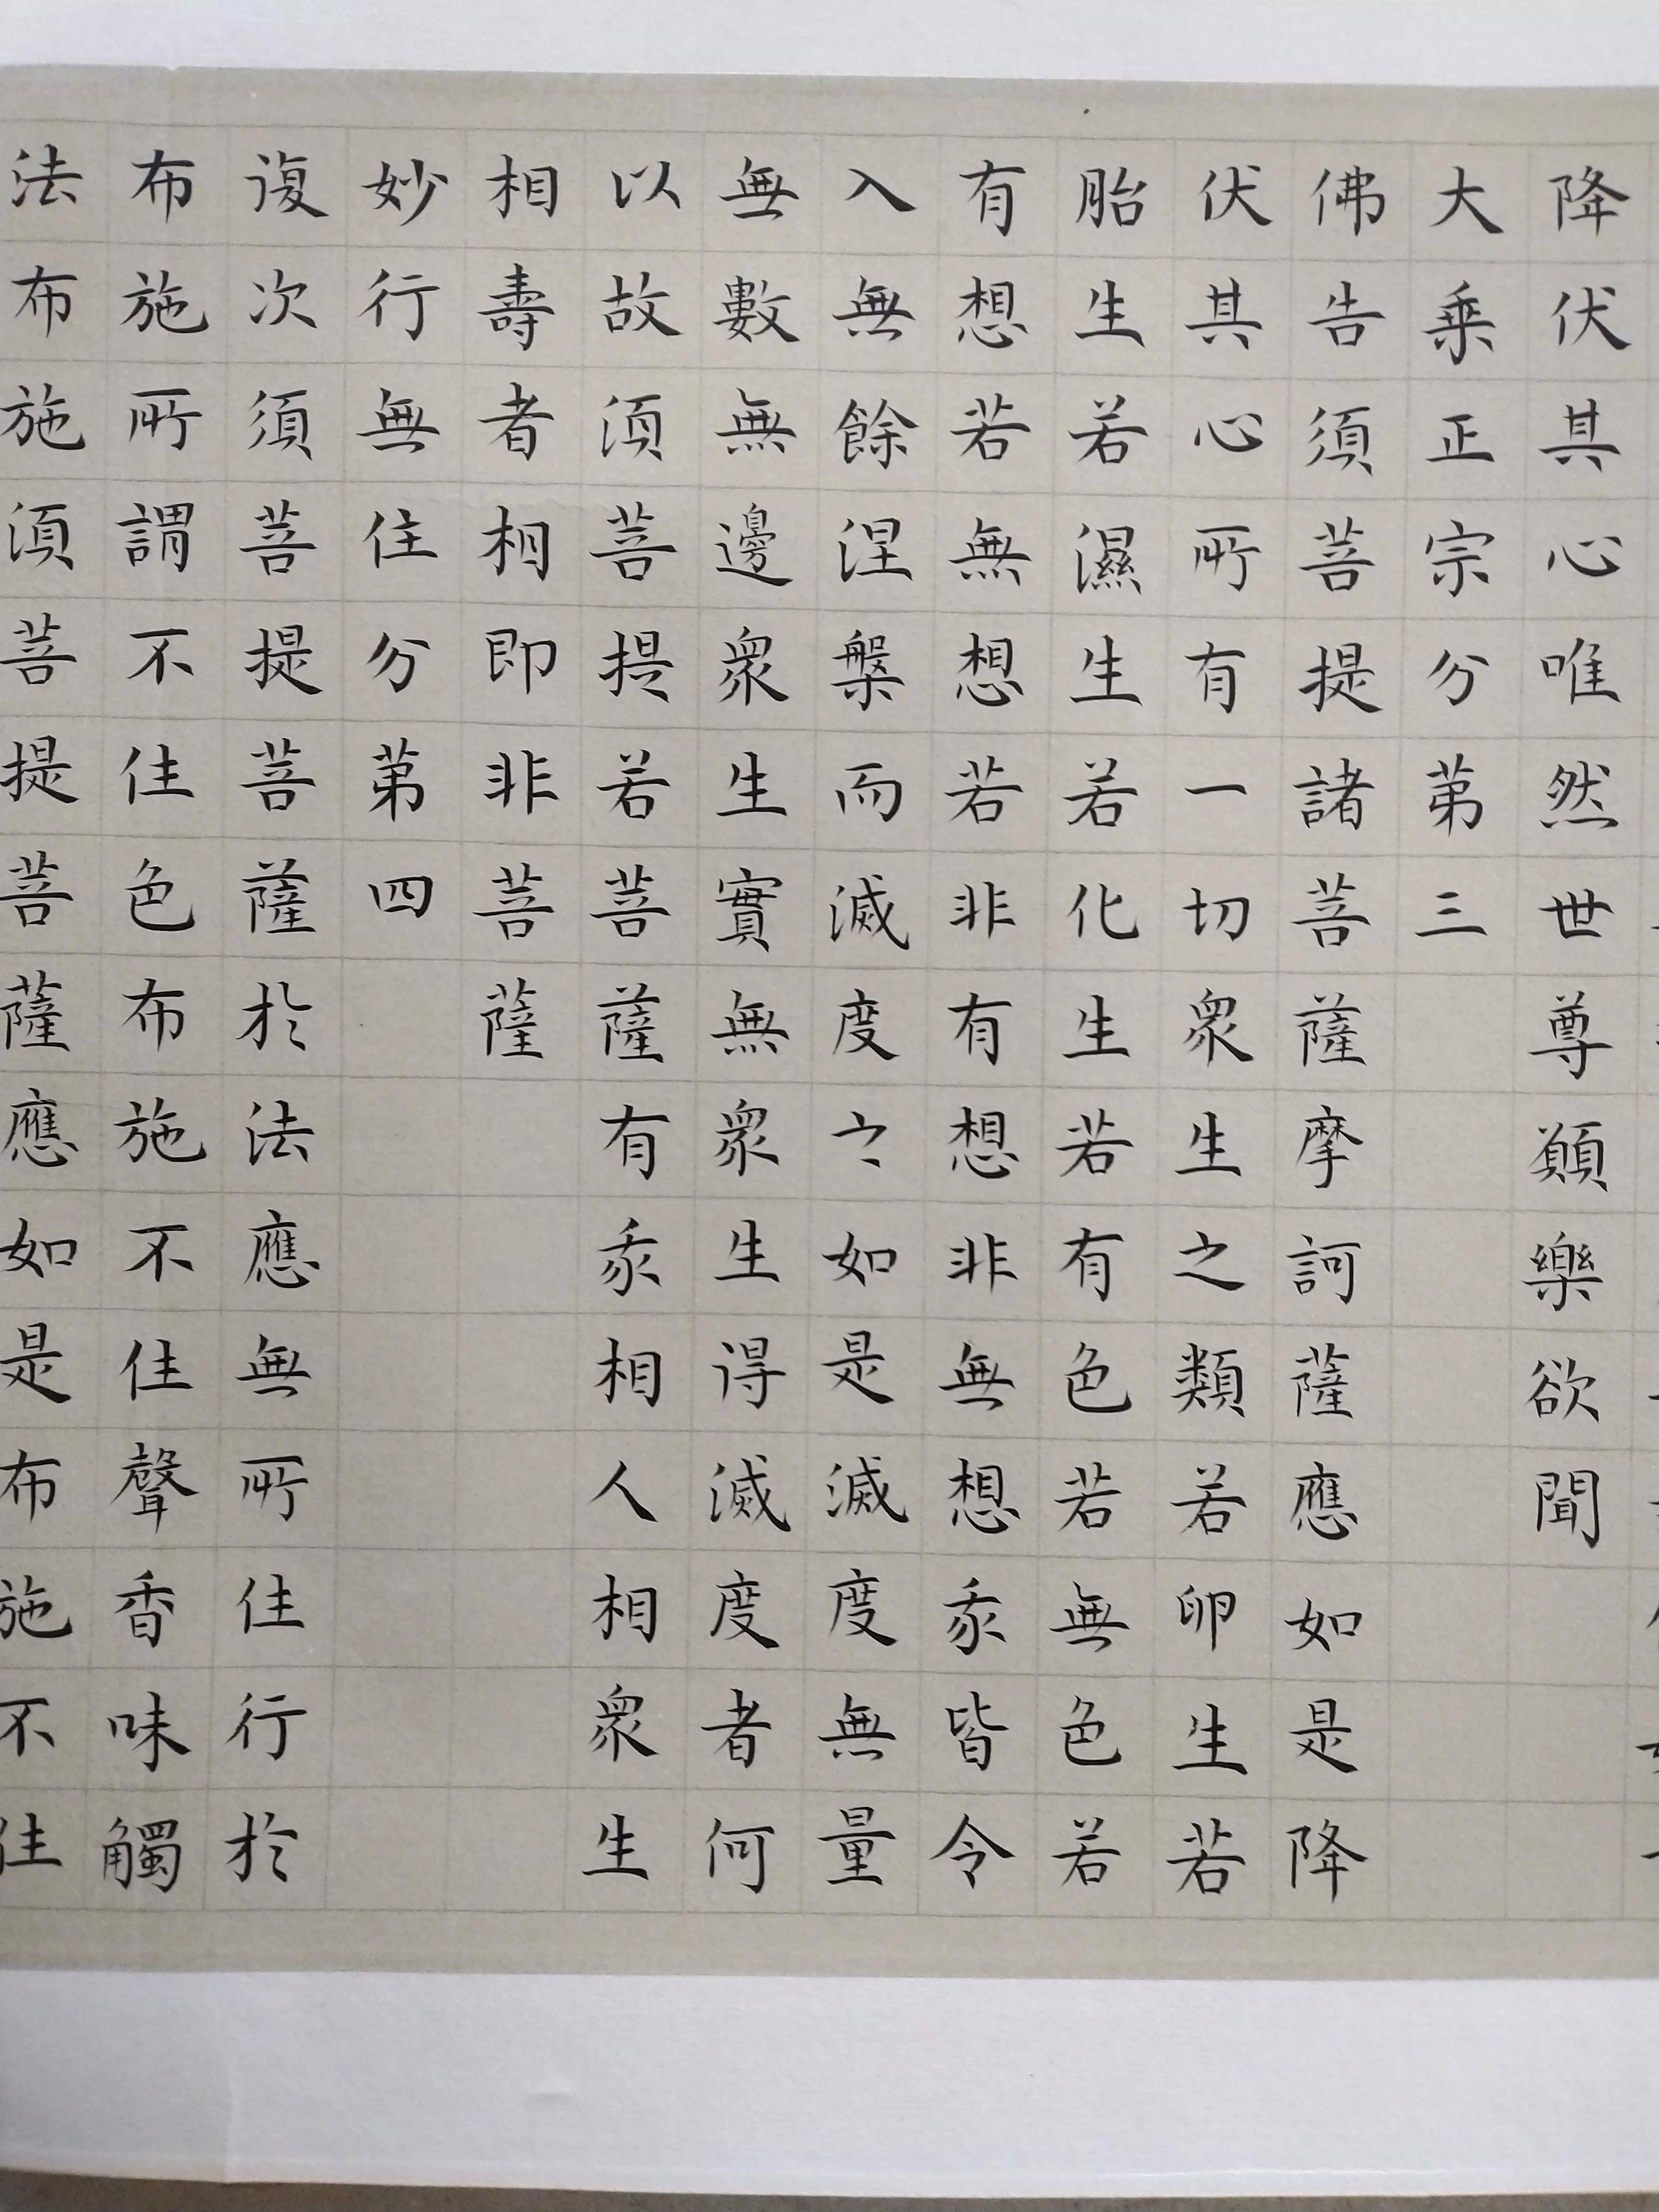 降伏其心唯然世尊願樂欲聞
大乘正宗分第三
佛告須菩提諸菩薩摩訶薩應如是降
伏其心所有一切眾生之類若卵生若
胎生若濕生若化生若有色若無色若
有想若無想若非有想非無想我皆令
入無餘涅槃而滅度之如是滅度無量
無數無邊眾生實無眾生得滅度者何
以故須菩提若菩薩有我相人相眾生
相壽者相即非菩薩
妙行無住分第四
復次須菩提菩薩於法應無所住行於
布施所謂不住色布施不住聲香味觸
法布施須菩提菩薩應如是布施不住